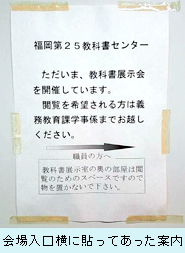 福岡第２５教科書センター
ただいま、教科書展示会
を開催しています。
閲覧を希望される方は義
務教育課学事係までお越し
ください。
職員の方へ
教科書展示室の奥の部屋は閲
覧のためのスペースですので
物を置かないで下さい。
会場入口横に貼ってあった案内